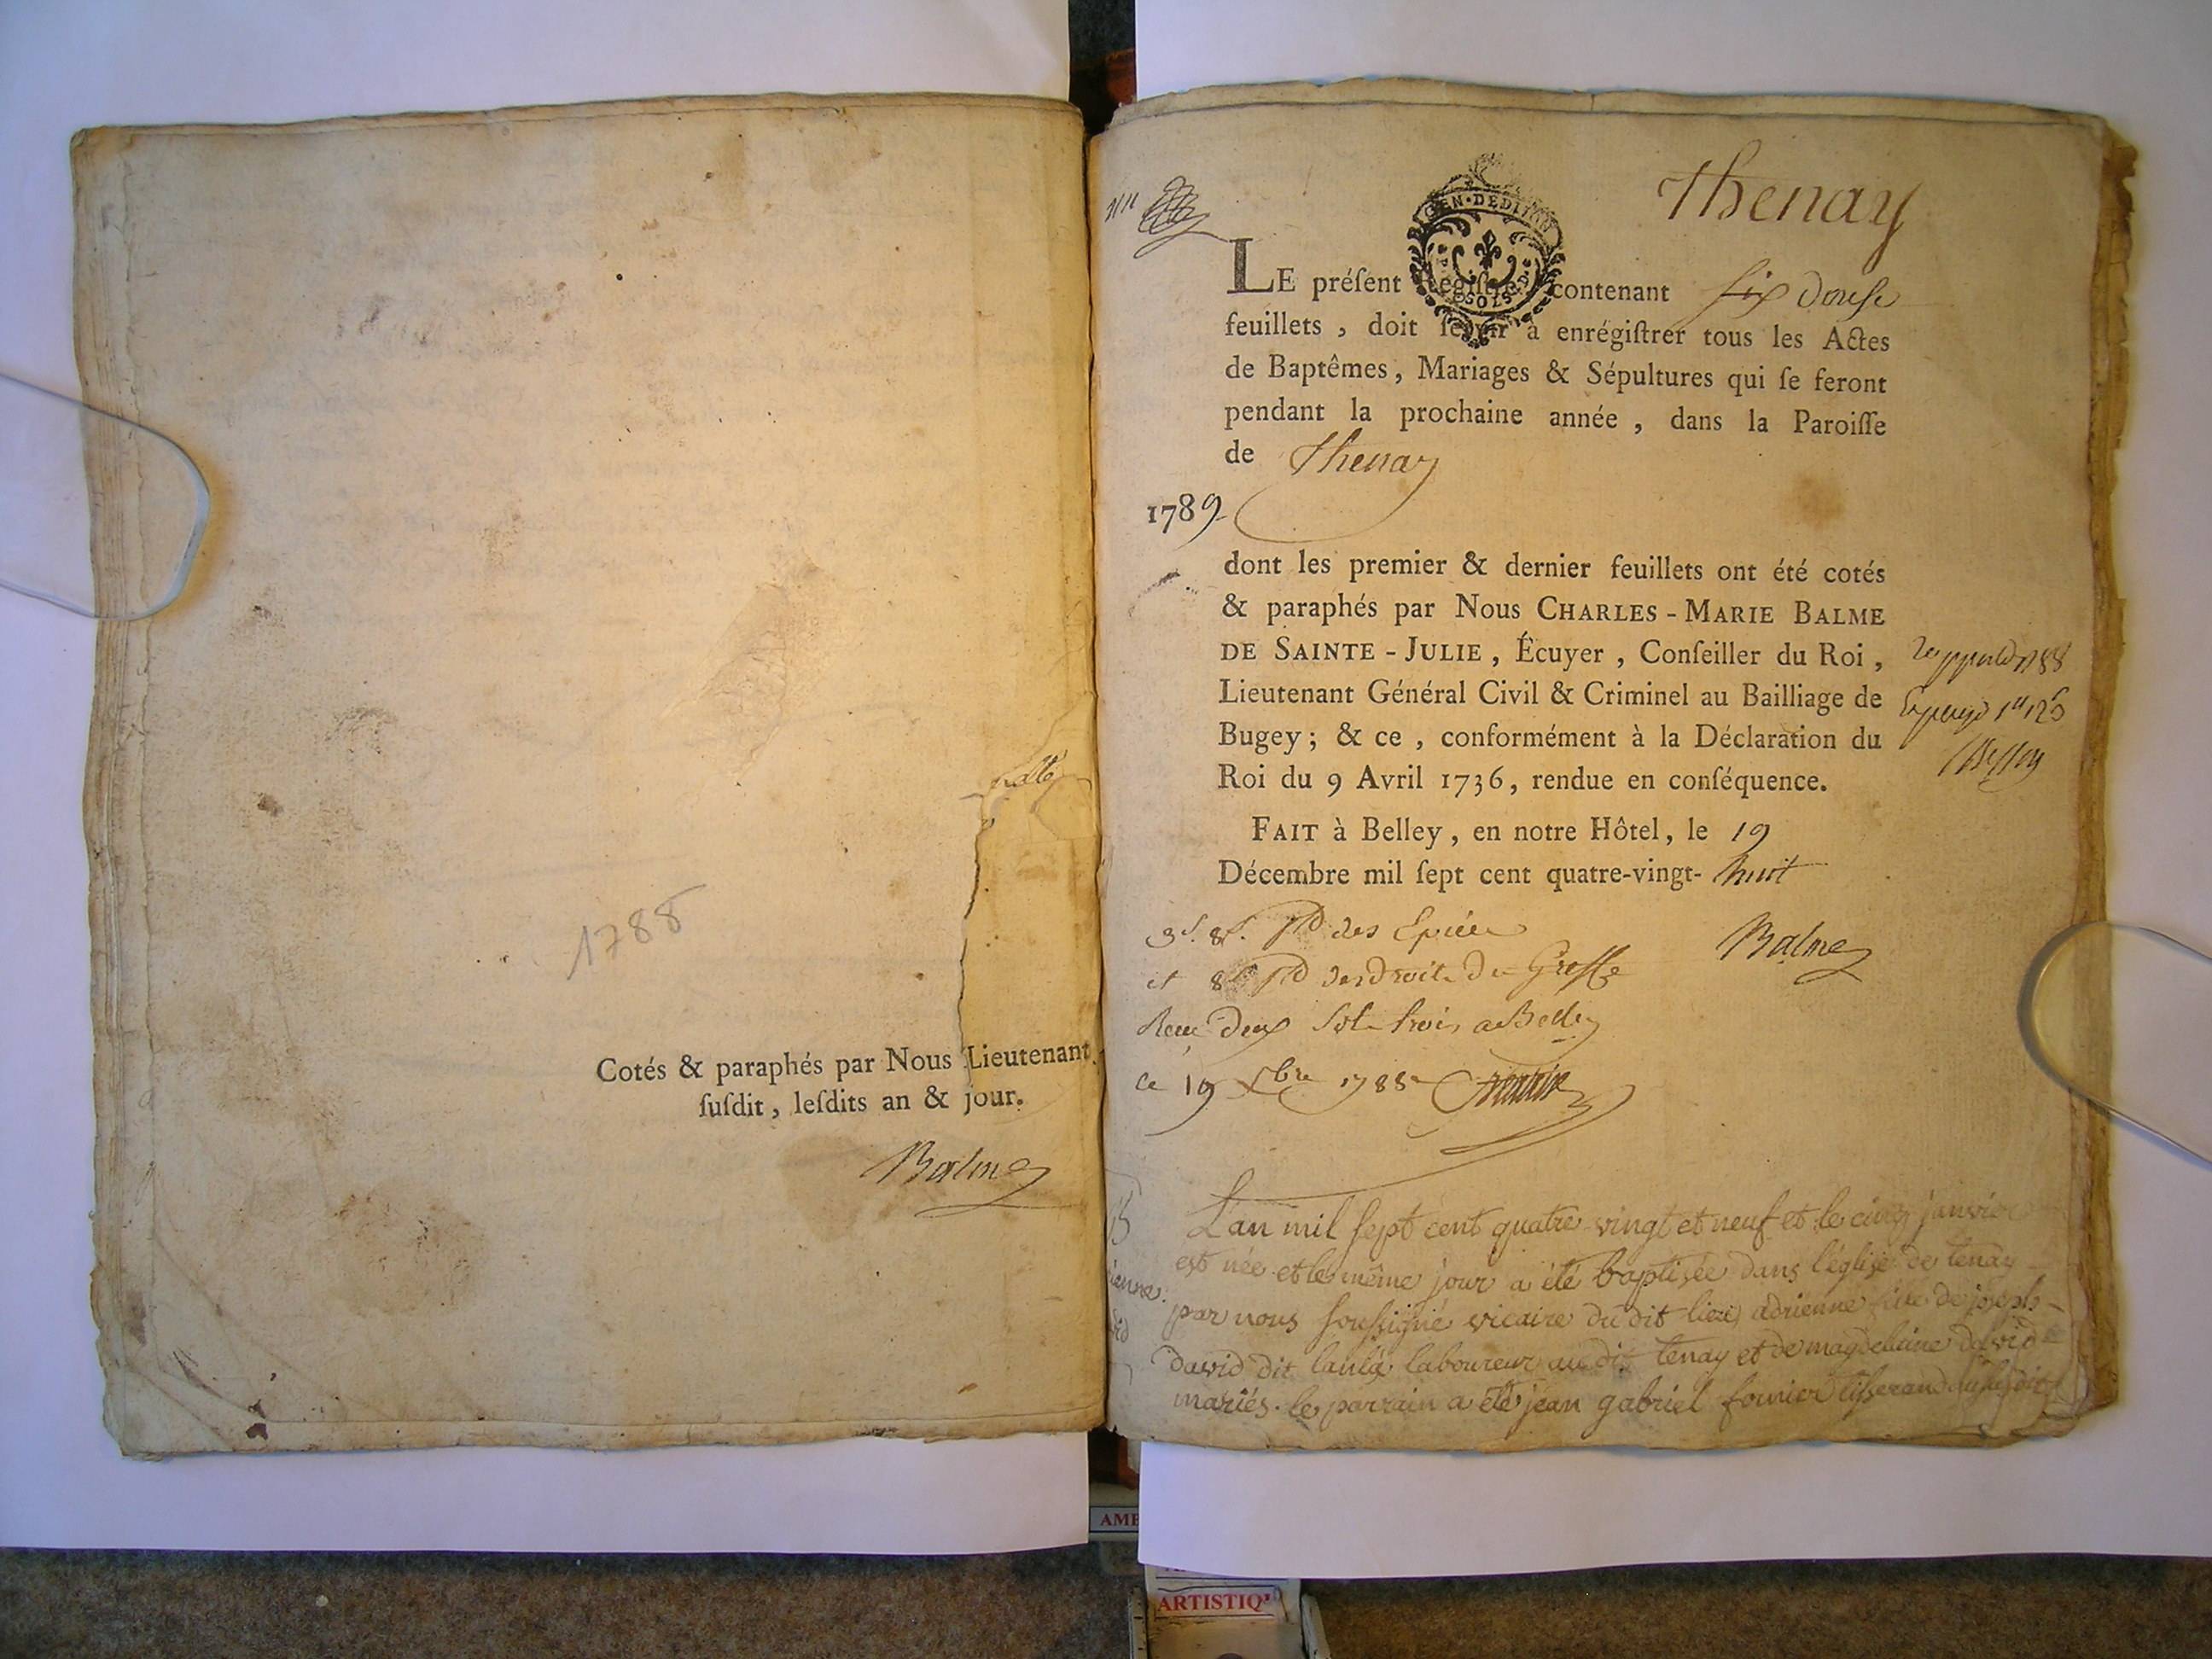 1788
Cotés & paraphés par Nous Lieutenant
ſuſdit, leſdits an & jour.
Balme
Thenay
GEN·DEDIJON
LE préſent Regiſtre, contenant ſix douſe
feuillets, doit ſervir à enrégiſtrer tous les Actes
de Baptêmes, Mariages & Sépultures qui ſe feront
pendant la prochaine année, dans la Paroiſſe
de Thenay
1789
dont les premier & dernier feuillets ont été cotés
& paraphés par Nous CHARLES-MARIE BALME
DE SAINTE-JULIE, Écuyer, Conſeiller du Roi,
Lieutenant Général Civil & Criminel au Bailliage de
Bugey; & ce, conformément à la Déclaration du
Roi du 9 Avril 1736, rendue en conſéquence.
FAIT à Belley, en notre Hôtel, le 19
Décembre mil ſept cent quatre-vingt-huit
Balme
des Epices
et des droits de Greffe
Receu deux sols trois a Belley
ce 19 Xbre 1788
L'an mil ſept cent quatre vingt et neuf et le cinq janvier
est née et le même jour a été baptisée dans l'église de tenay
par nous ſouſſigné vicaire du dit lieu adrienne fille de joseph
david dit laboureur au dit tenay et de magdelaine david
mariés. le parrain a été jean gabriel fournier tiſserand du ſuſdit
AME
ARTISTIQ'